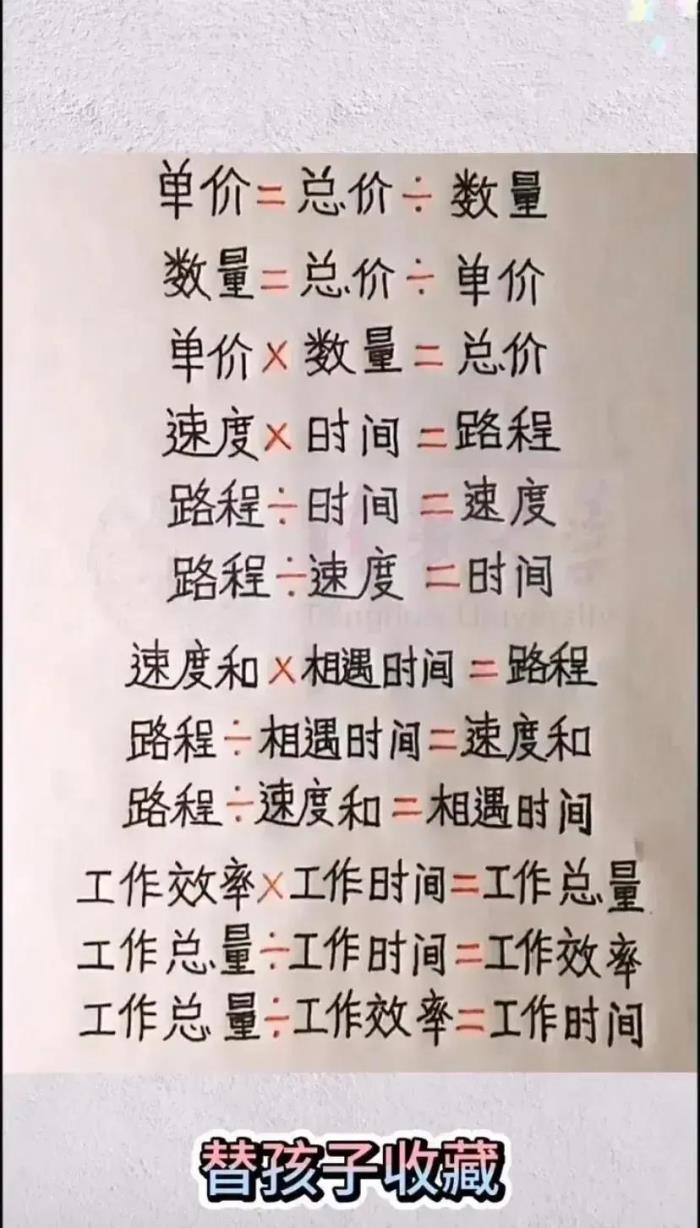 单价=总价÷数量
数量=总价÷单价
单价×数量=总价
速度×时间=路程
路程÷时间=速度
路程÷速度=时间
速度和×相遇时间=路程
路程÷相遇时间=速度和
路程÷速度和=相遇时间
工作效率×工作时间=工作总量
工作总量÷工作时间=工作效率
工作总量÷工作效率=工作时间
替孩子收藏